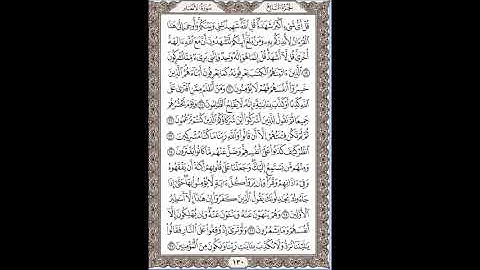 سُورَةُ الأَنْعَامِ الجُزْءُ السَّابِعُ
قُلْ أَىُّ شَىْءٍ أَكْبَرُ شَهَٰدَةً قُلِ ٱللَّهُ شَهِيدٌۢ بَيْنِى وَبَيْنَكُمْ وَأُوحِىَ إِلَىَّ هَٰذَا
ٱلْقُرْءَانُ لِأُنذِرَكُم بِهِۦ وَمَنۢ بَلَغَ أَئِنَّكُمْ لَتَشْهَدُونَ أَنَّ مَعَ ٱللَّهِ ءَالِهَةً
أُخْرَىٰ قُل لَّآ أَشْهَدُ قُلْ إِنَّمَا هُوَ إِلَٰهٌ وَٰحِدٌ وَإِنَّنِى بَرِىٓءٌ مِّمَّا تُشْرِكُونَ
١٩ ٱلَّذِينَ ءَاتَيْنَٰهُمُ ٱلْكِتَٰبَ يَعْرِفُونَهُۥ كَمَا يَعْرِفُونَ أَبْنَآءَهُمُ ٱلَّذِينَ
خَسِرُوٓا۟ أَنفُسَهُمْ فَهُمْ لَا يُؤْمِنُونَ ٢٠ وَمَنْ أَظْلَمُ مِمَّنِ ٱفْتَرَىٰ عَلَى
ٱللَّهِ كَذِبًا أَوْ كَذَّبَ بِـَٔايَٰتِهِۦٓ إِنَّهُۥ لَا يُفْلِحُ ٱلظَّٰلِمُونَ ٢١ وَيَوْمَ نَحْشُرُهُمْ
جَمِيعًا ثُمَّ نَقُولُ لِلَّذِينَ أَشْرَكُوٓا۟ أَيْنَ شُرَكَآؤُكُمُ ٱلَّذِينَ كُنتُمْ تَزْعُمُونَ ٢٢
ثُمَّ لَمْ تَكُن فِتْنَتُهُمْ إِلَّآ أَن قَالُوا۟ وَٱللَّهِ رَبِّنَا مَا كُنَّا مُشْرِكِينَ ٢٣
ٱنظُرْ كَيْفَ كَذَبُوا۟ عَلَىٰٓ أَنفُسِهِمْ وَضَلَّ عَنْهُم مَّا كَانُوا۟ يَفْتَرُونَ ٢٤
وَمِنْهُم مَّن يَسْتَمِعُ إِلَيْكَ وَجَعَلْنَا عَلَىٰ قُلُوبِهِمْ أَكِنَّةً أَن يَفْقَهُوهُ
وَفِىٓ ءَاذَانِهِمْ وَقْرًا وَإِن يَرَوْا۟ كُلَّ ءَايَةٍ لَّا يُؤْمِنُوا۟ بِهَا حَتَّىٰٓ إِذَا
جَآءُوكَ يُجَٰدِلُونَكَ يَقُولُ ٱلَّذِينَ كَفَرُوٓا۟ إِنْ هَٰذَآ إِلَّآ أَسَٰطِيرُ
ٱلْأَوَّلِينَ ٢٥ وَهُمْ يَنْهَوْنَ عَنْهُ وَيَنْـَٔوْنَ عَنْهُ وَإِن يُهْلِكُونَ إِلَّآ
أَنفُسَهُمْ وَمَا يَشْعُرُونَ ٢٦ وَلَوْ تَرَىٰٓ إِذْ وُقِفُوا۟ عَلَى ٱلنَّارِ فَقَالُوا۟
يَٰلَيْتَنَا نُرَدُّ وَلَا نُكَذِّبَ بِـَٔايَٰتِ رَبِّنَا وَنَكُونَ مِنَ ٱلْمُؤْمِنِينَ ٢٧
١٣٠